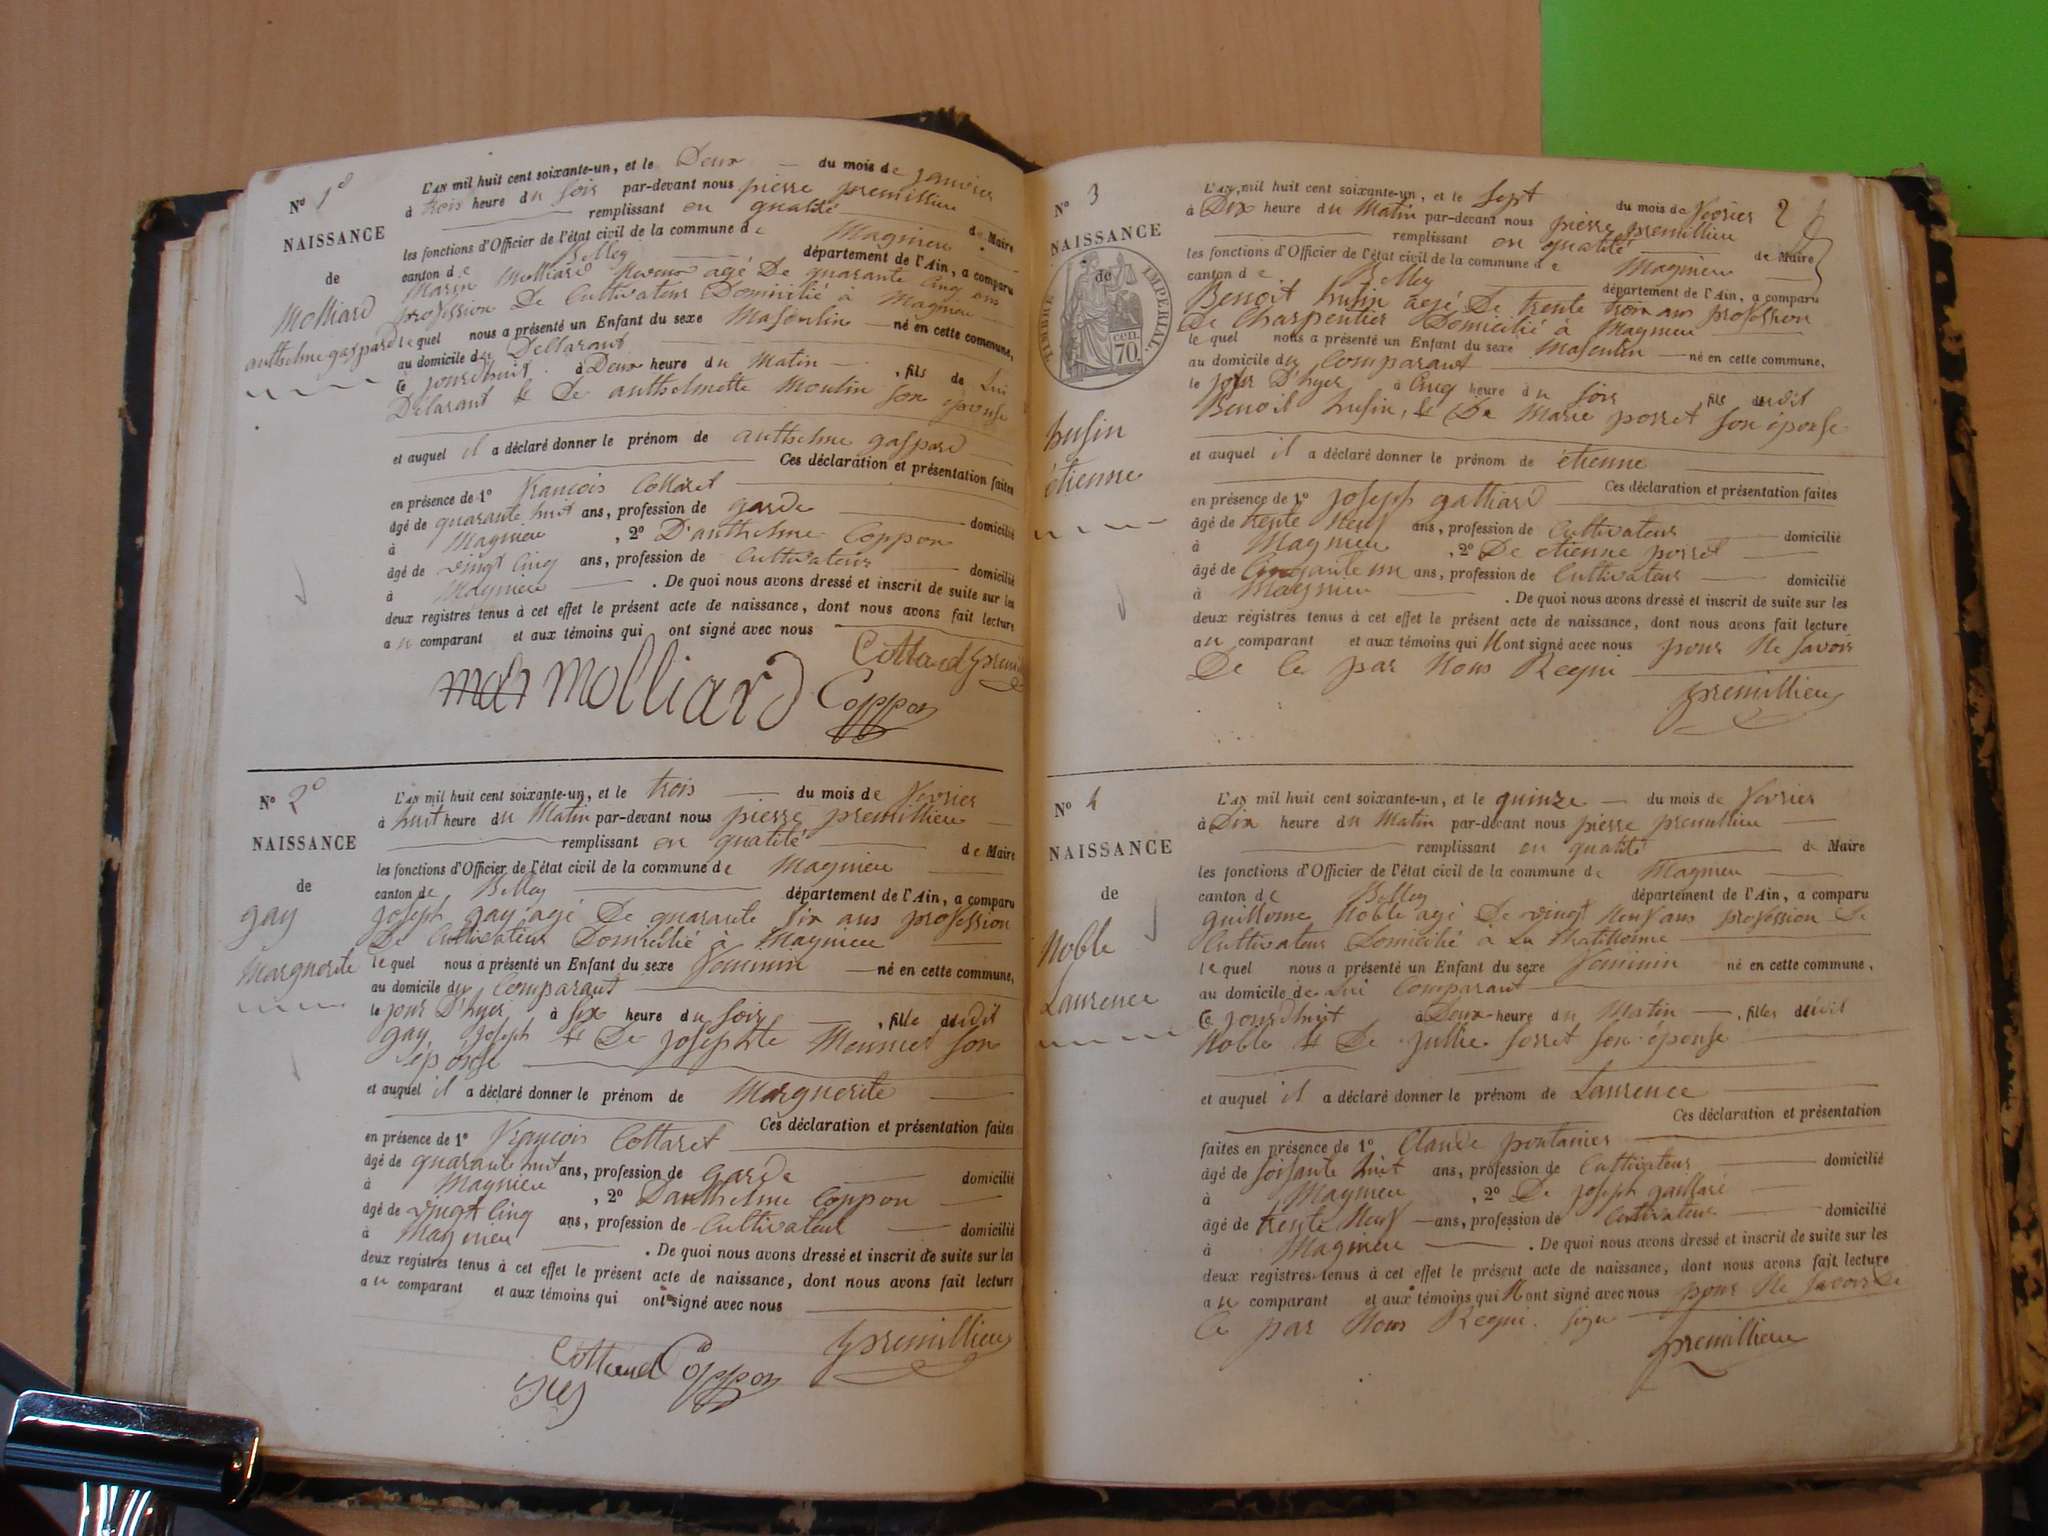 N° 1°
NAISSANCE
de
Molliard
anthelme gaspard
L'AN mil huit cent soixante-un, et le Deux du mois de janvier
à trois heure du soir par-devant nous pierre premillieu
remplissant en qualité de Maire
les fonctions d'Officier de l'état civil de la commune de Magnieu
canton de Belley département de l'Ain, a comparu
Marin Molliard agé De quarante Cinq ans
profession De Cultivateur Domicilié à Magnieu
le quel nous a présenté un Enfant du sexe Masculin né en cette commune,
au domicile du Dellarant
Ce jourdhuit à Deux heure du Matin , fils de Lui
Délarant & De anthelmette Moulin son éponse
et auquel il a déclaré donner le prénom de anthelme gaspard
Ces déclaration et présentation faites
en présence de 1° François Cottaret
âgé de quarante huit ans, profession de garde domicilié
à Magnieu , 2° D'anthelme Coppon
âgé de vingt Cinq ans, profession de Cultivateur domicilié
à Magnieu . De quoi nous avons dressé et inscrit de suite sur les
deux registres tenus à cet effet le présent acte de naissance, dont nous avons fait lecture
au comparant et aux témoins qui ont signé avec nous
Cottared premillieu
mar Molliard Coppon
N° 2°
NAISSANCE
de
gay
Marguerite
L'AN mil huit cent soixante-un, et le trois du mois de Fevrier
à huit heure du Matin par-devant nous pierre premillieu
remplissant en qualité de Maire
les fonctions d'Officier de l'état civil de la commune de Magnieu
canton de Belley département de l'Ain, a comparu
joseph gay agé De quarante Six ans profession
De Cultivateur Domicilié à Magnieu
le quel nous a présenté un Enfant du sexe Feminin né en cette commune,
au domicile du Comparant
le jour D'hyer à six heure du soir , fille dudit
gay joseph & De josephte Meunier son
éponse
et auquel il a déclaré donner le prénom de Marguerite
Ces déclaration et présentation faites
en présence de 1° François Cottaret
âgé de quarante huit ans, profession de garde domicilié
à Magnieu , 2° D'anthelme Coppon
âgé de vingt Cinq ans, profession de Cultivateur domicilié
à Magnieu . De quoi nous avons dressé et inscrit de suite sur les
deux registres tenus à cet effet le présent acte de naissance, dont nous avons fait lecture
au comparant et aux témoins qui ont signé avec nous
premillieu
Cottared Coppon
gay
N° 3
NAISSANCE
de
TIMBRE IMPERIAL
70 cen.
husin
étienne
2
L'AN mil huit cent soixante-un, et le Sept du mois de Fevrier
à Dix heure du Matin par-devant nous pierre premillieu
remplissant en qualité de Maire
les fonctions d'Officier de l'état civil de la commune de Magnieu
canton de Belley département de l'Ain, a comparu
Benoit husin agé De trente trois ans profession
De Charpentier Domicilié à Magnieu
le quel nous a présenté un Enfant du sexe Masculin né en cette commune,
au domicile du Comparant
le jour D'hyer à Cinq heure du soir fils dudit
Benoit husin, & De Marie porret son éponse
et auquel il a déclaré donner le prénom de étienne
Ces déclaration et présentation faites
en présence de 1° joseph galliard
âgé de trente Neuf ans, profession de Cultivateur domicilié
à Magnieu , 2° De étienne porret
âgé de Cinquante un ans, profession de Cultivateur domicilié
à Magnieu . De quoi nous avons dressé et inscrit de suite sur les
deux registres tenus à cet effet le présent acte de naissance, dont nous avons fait lecture
au comparant et aux témoins qui Nont signé avec nous pour Ne savoir
De Ce par Nous Requi
premillieu
N° 4
NAISSANCE
de
Noble
Laurence
L'AN mil huit cent soixante-un, et le quinze du mois de Fevrier
à Dix heure du Matin par-devant nous pierre premillieu
remplissant en qualité de Maire
les fonctions d'Officier de l'état civil de la commune de Magnieu
canton de Belley département de l'Ain, a comparu
guillome Noble agé De vingt Neuf ans profession De
Cultivateur Domicilié à La
le quel nous a présenté un Enfant du sexe Feminin né en cette commune,
au domicile de Lui Comparant
Ce jourdhuit à Deux heure du Matin , filles dudit
Noble & De jullie sorret son éponse
et auquel il a déclaré donner le prénom de Laurence
Ces déclaration et présentation
faites en présence de 1° Claude pontanier
âgé de soisante huit ans, profession de Cultivateur domicilié
à Magnieu , 2° De joseph gaillard
âgé de trente Neuf ans, profession de Cultivateur domicilié
à Magnieu . De quoi nous avons dressé et inscrit de suite sur les
deux registres tenus à cet effet le présent acte de naissance, dont nous avons fait lecture
au comparant et aux témoins qui Nont signé avec nous pour Ne savoir De
Ce par Nous Requi signe
premillieu